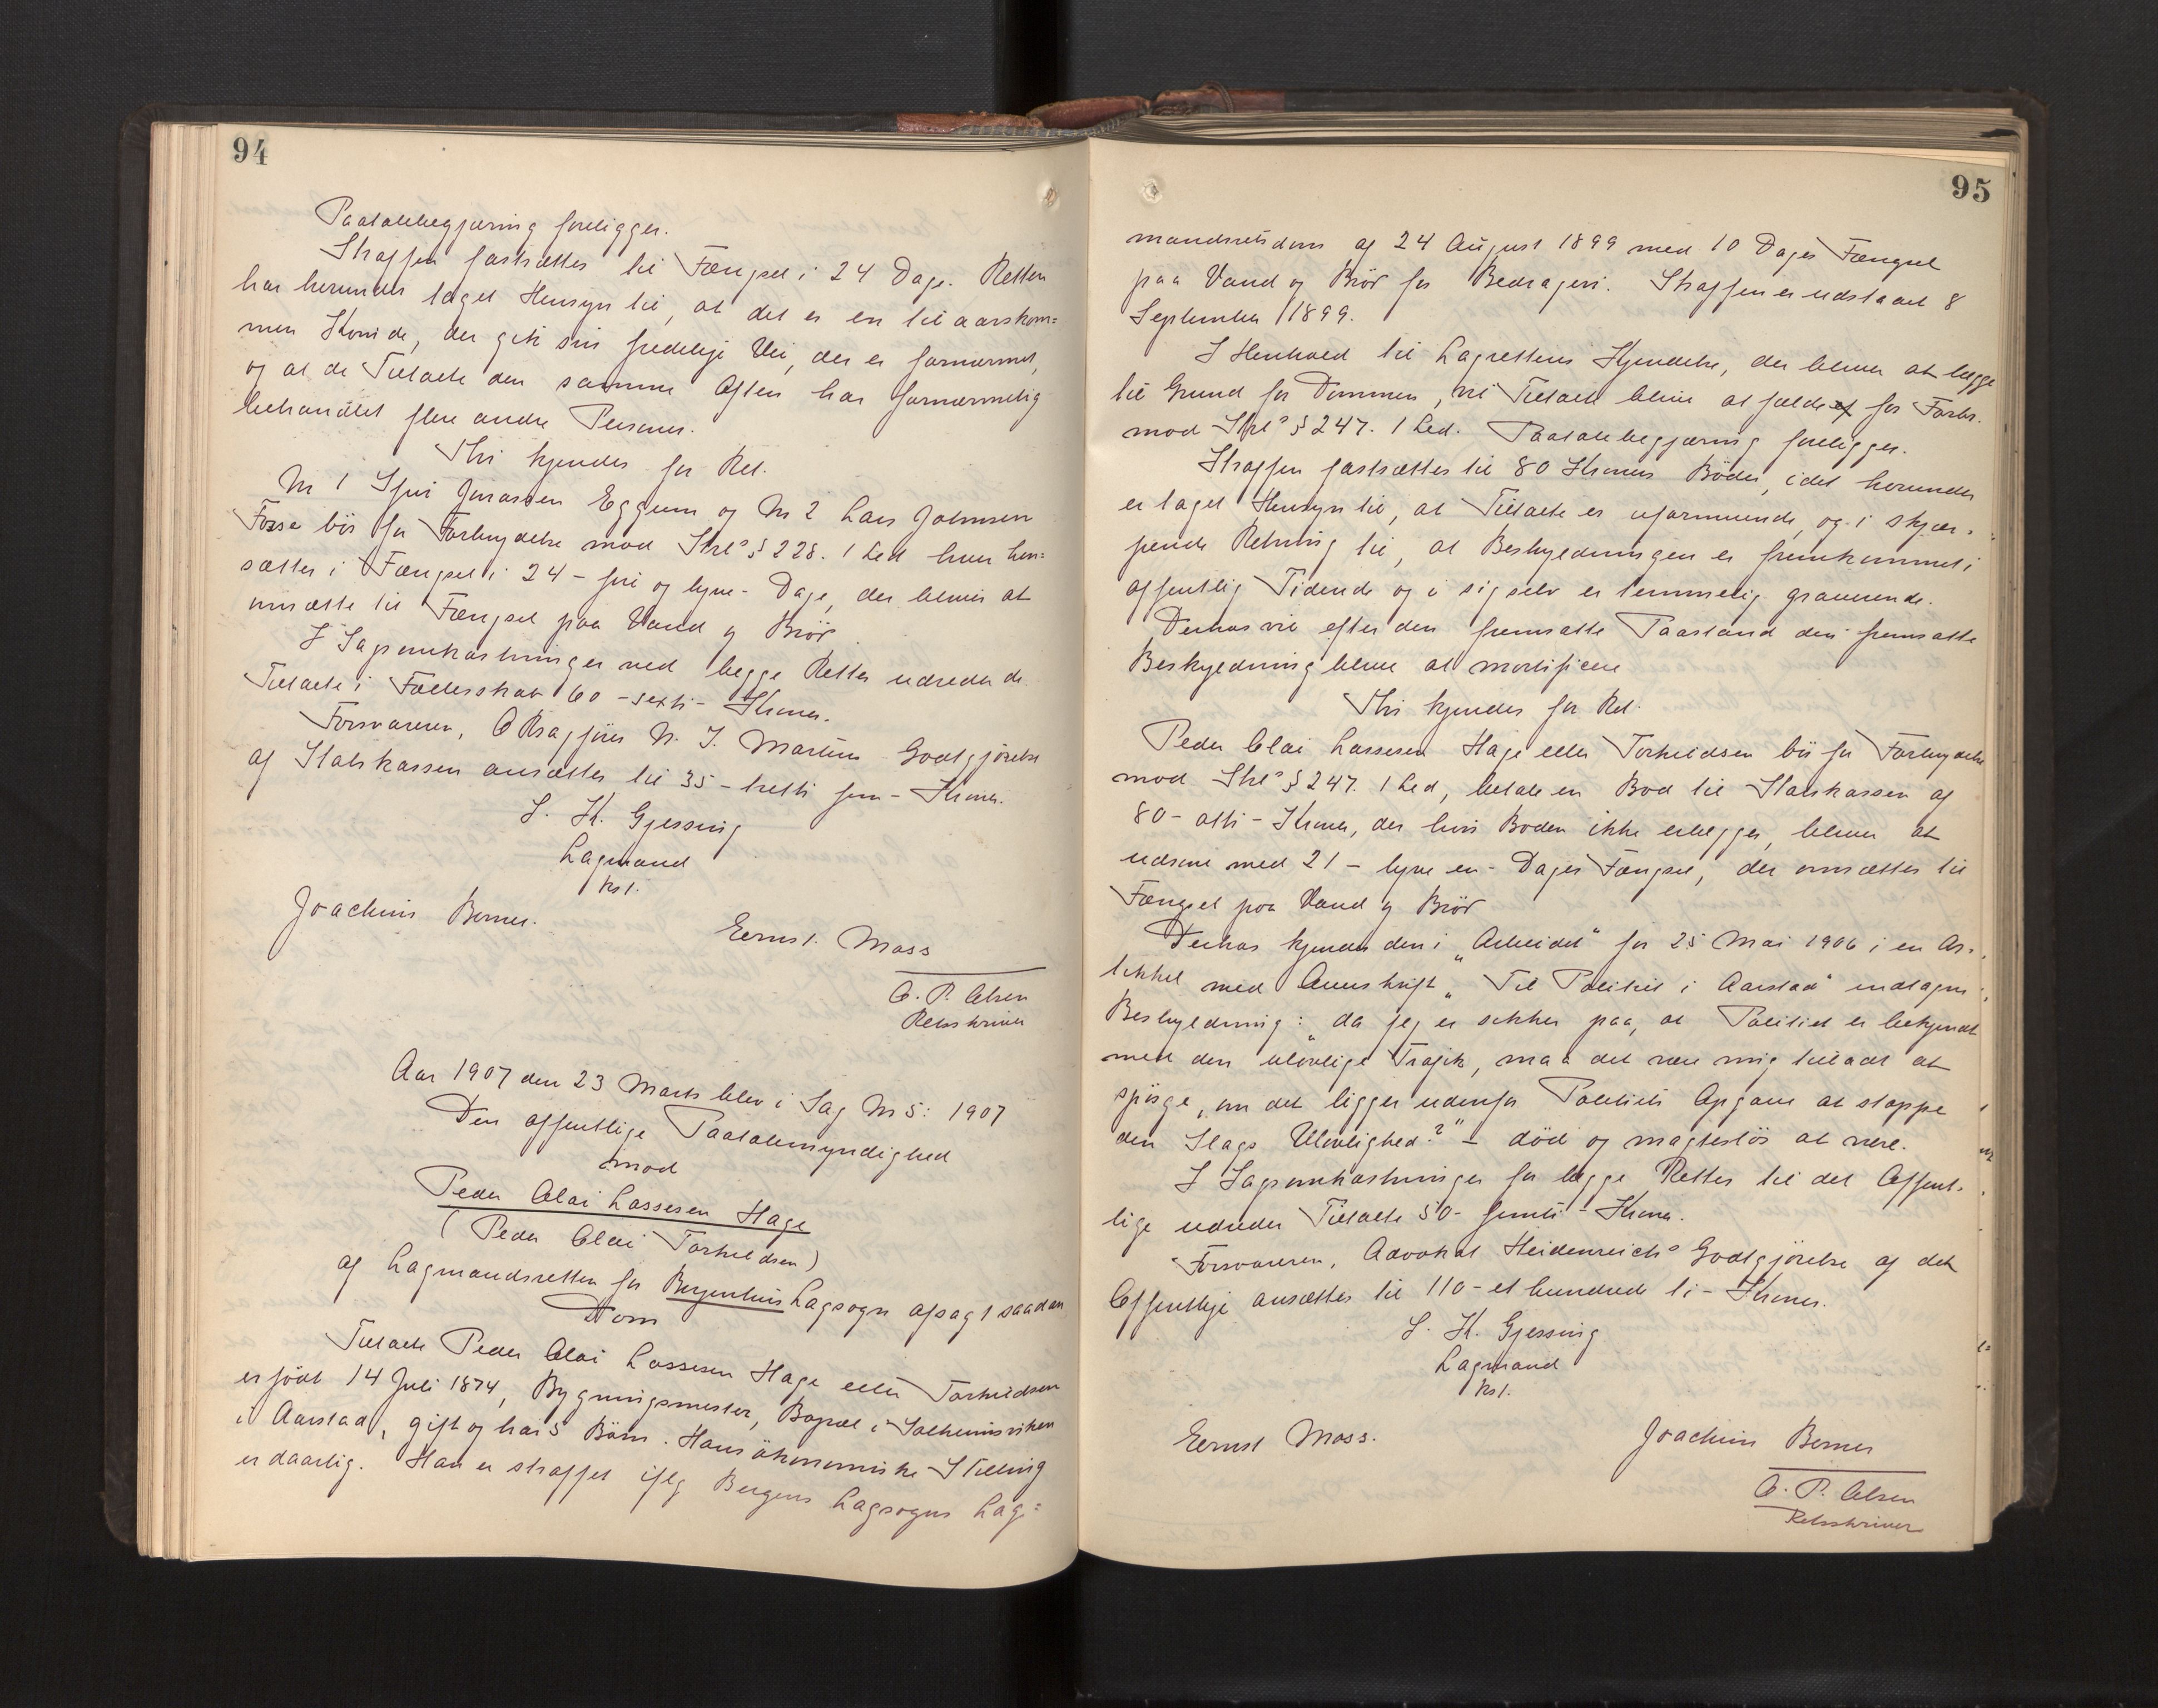 94
Paatalebegjæring foreligger.
Straffen fastsættes til Fængsel i 24 Dage. Retten
har herunder taget Hensyn til, at det er en til aarskom=
men Kvinde, der gik sin fredelige Vei, der er fornærmet,
og at de Tiltalte den samme Aften har fornærmelig
behandlet flere andre Personer.
Thi kjendes for Ret.
Nr 1 Sjur Jonassen Eggum og Nr 2 Lars Johnsen
Fosse bör for Forbrydelse mod Strls § 228. 1 Led hver hen=
sættes i Fængsel i 24 - fire og tyve - Dage, der bliver at
omsætte til Fængsel paa Vand og Bröd.
I Sagsomkostninger ved begge Retter udreder de
Tiltalte i Fællesskab 60 - sexti - Kroner.
Forsvareren, ORsagförer N. J. Martens Godtgjörelse
af Statskassen ansættes til 35 - tretti fem - Kroner.
S. K. Gjessing
Lagmand
kst.
Joachim Berner.
Eernst. Moss
O. P. Olsen
Retsskriver
Aar 1907 den 23 Marts blev i Sag Nr 5: 1907
Den offentlige Paatalemyndighed
mod
Peder Olai Lassesen Hage
(Peder Olai Torkildsen)
af Lagmandsretten for Bergenhus Lagsogn afsagt saadan
Dom
Tiltalte Peder Olai Lassesen Hage eller Torkildsen
er födt 14 Juli 1874, Bygningsmester, Bopæl i Solheimsviken
i Aarstad, gift og har 5 Börn. Hans ökonomiske Stilling
er daarlig. Han er straffet iflg Bergens Lagsogns Lag=
95
mandsretsdom af 24 August 1899 med 10 Dages Fængsel
paa Vand og Bröd for Bedrageri. Straffen er udstaaet 8
September 1899.
I Henhold til Lagrettens Kjendelse, der bliver at lægge
til Grund for Dommen, vil Tiltalte blive at fælde for Forbr.
mod Strls § 247. 1 Led. Paatalebegjæring foreligger.
Straffen fastsættes til 80 Kroners Böder, idet herunder
er taget Hensyn til, at Tiltalte er uformuende, og i skjær=
pende Retning til, at Beskyldningen er fremkommet i
offentlig Tidende og i sig selv er temmelig graverende.
Derhos vil efter den fremsatte Paastand den fremsatte
Beskyldning blive at mortificere
Thi kjendes for Ret.
Peder Olai Lassesen Hage eller Torkildsen bör for Forbrydelse
mod Strls § 247. 1 Led, betale en Bod til Statskassen af
80 - otti - Kroner, der hvis Boden ikke erlægges, bliver at
udsone med 21 - tyve en - Dages Fængsel, der omsættes til
Fængsel paa Vand og Bröd
Derhos kjendes den i „Arbeidet" for 25 Mai 1906 i en Ar=
tikkel med Overskrift „Til Politiet i Aarstad" indtagne
Beskyldning: „da jeg er sikker paa, at Politiet er bekjendt
med den ulovlige Trafik, maa det være mig tilladt at
spörge, om det ligger udenfor Politiets Opgave at stoppe
den Slags Ulovlighed?" - död og magteslös at være.
I Sagsomkostninger for begge Retter til det Offent=
lige udreder Tiltalte 50 - femti - Kroner.
Forsvareren, Advokat Heidenreichs Godtgjörelse af det
Offentlige ansættes til 110 - et hundrede ti - Kroner.
S. K. Gjessing
Lagmand
kst.
Eernst Moss.
Joachim Berner
O. P. Olsen
Retsskriver